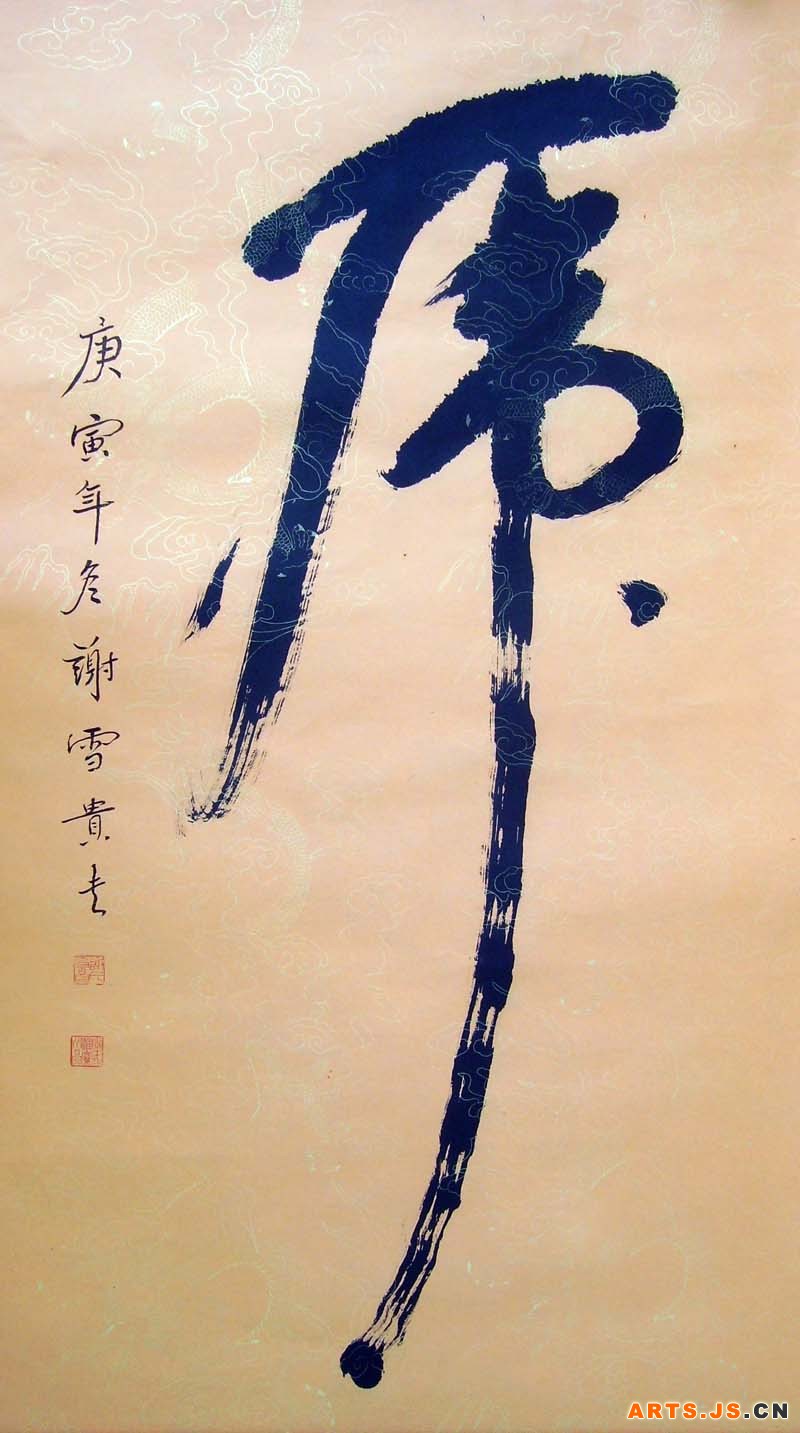 虎
庚寅年冬謝雪貴書
ARTS.JS.CN